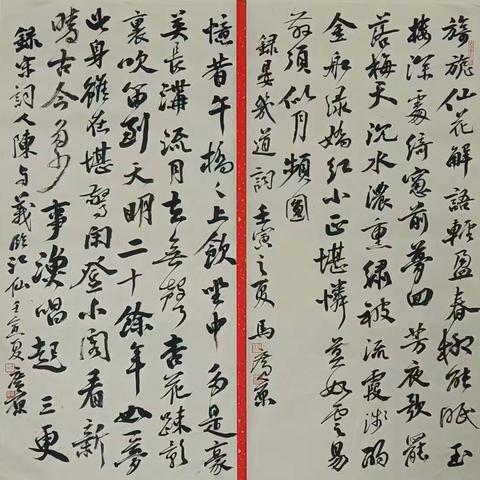 旖旎仙花解語輕盈春柳能眠玉
樓深處綺窗前夢回芳夜歌罷
落梅天沉水濃熏繡被流霞淺酌
金船綠嬌紅小正堪憐莫如雲易
散須似月頻圓
錄晏幾道詞 壬寅之夏 馬
憶昔午橋〻上飲坐中多是豪
英長溝流月去無聲杏花疎影
裏吹笛到天明二十餘年如一夢
此身雖在堪驚閑登小閣看新
晴古今多少事漁唱起三更
錄宋詞人陳与義臨江仙壬寅夏